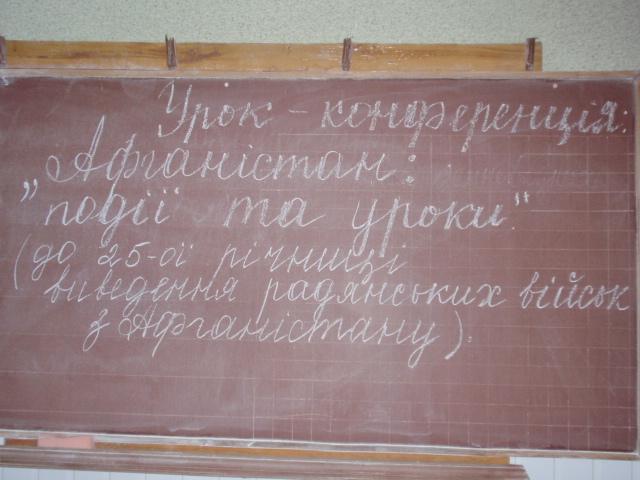 Урок - конференція:
„Афганістан:
події та уроки."
(до 25-ої річниці
виведення радянських військ
з Афганістану).